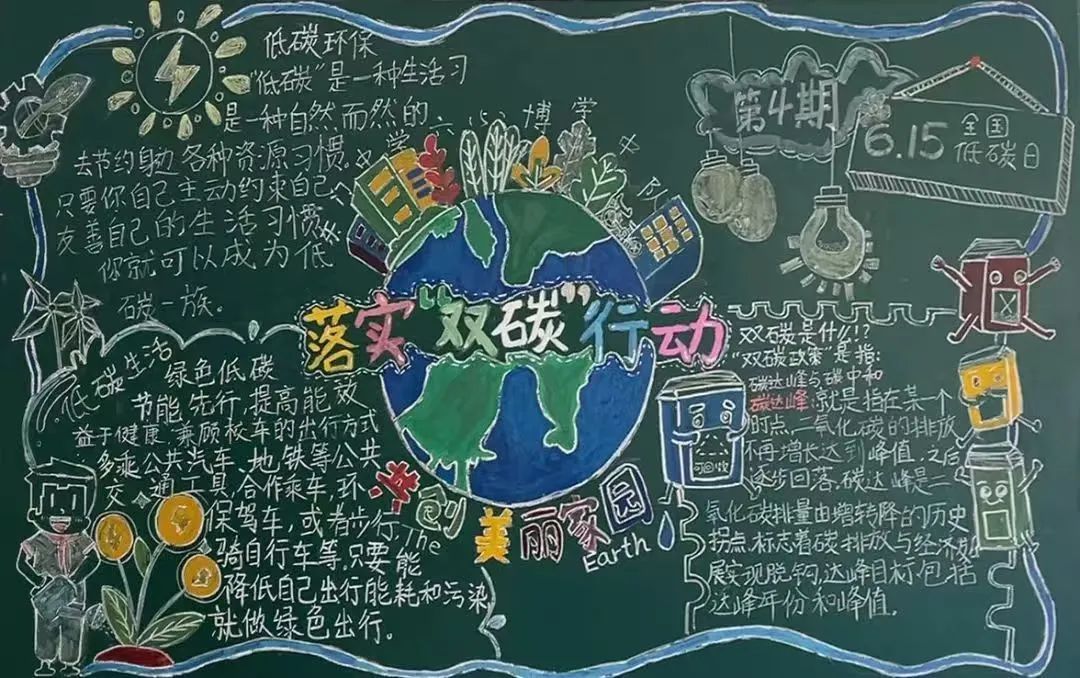 低碳环保
"低碳"是一种生活习
是一种自然而然的
去节约身边各种资源习惯。
只要你自己主动约束自己
友善自己的生活习惯
你就可以成为低
碳一族。
博学
第4期
6.15 全国
低碳日
落实"双碳"行动
共创美丽家园
The Earth
低碳生活
绿色低碳
节能先行,提高能效
益于健康,兼顾板车的出行方式
多乘公共汽车、地铁等公共
交通工具,合作乘车,环
保驾车,或者步行,
骑自行车等,只要能
降低自己出行能耗和污染
就做绿色出行。
双碳是什么!?
"双碳政策"是指:
碳达峰与碳中和
碳达峰:就是指在某一个
时点,二氧化碳的排放
不再增长达到峰值,之后
逐步回落,碳达峰是二
氧化碳排量由增转降的历史
拐点,标志着碳排放与经济发
展实现脱钩,达峰目标包括
达峰年份和峰值。
可回收